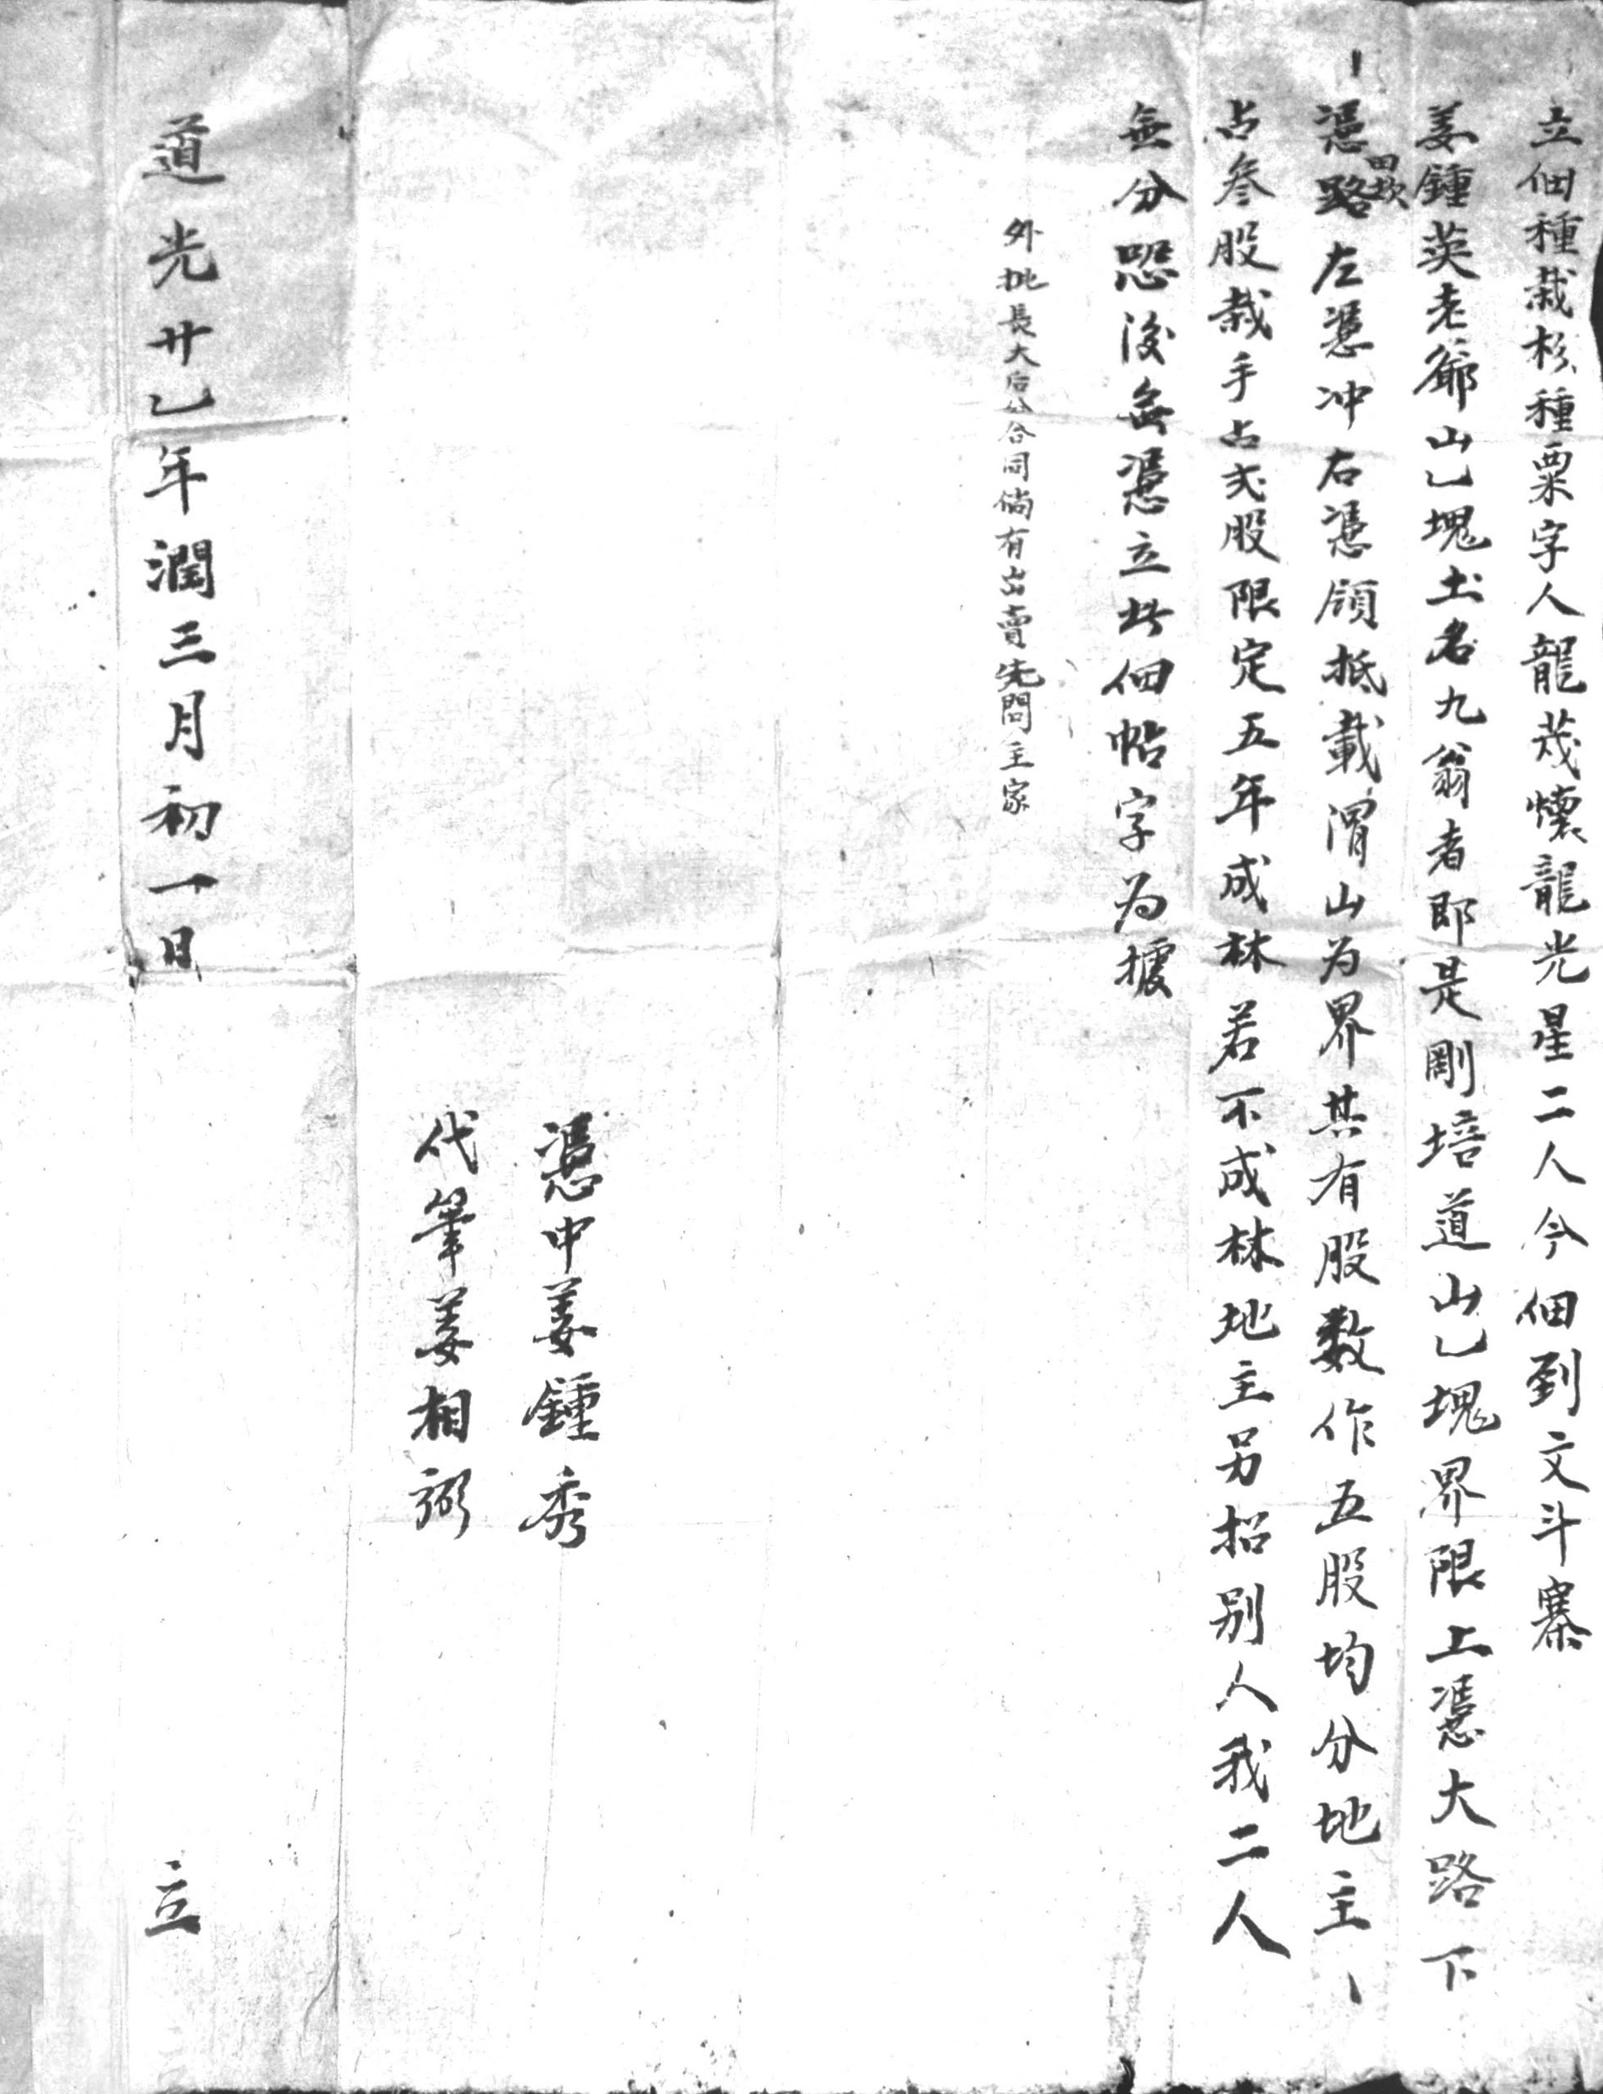 立佃種栽杉種粟字人龍茂懷龍光星二人今佃到文斗寨
姜鍾英老爺山乙塊土名九翁者即是剛培道山乙塊界限上憑大路下
憑路田坎左憑冲右憑領抵載渭山为界其有股数作五股均分地主
占叁股栽手占弍股限定五年成林若不成林地主另招别人我二人
無分恐後無憑立此佃帖字为據
外批長大后分合同倘有出賣先問主家
憑中姜鍾秀
代筆姜相弼
道光廿乙年潤三月初一日 立